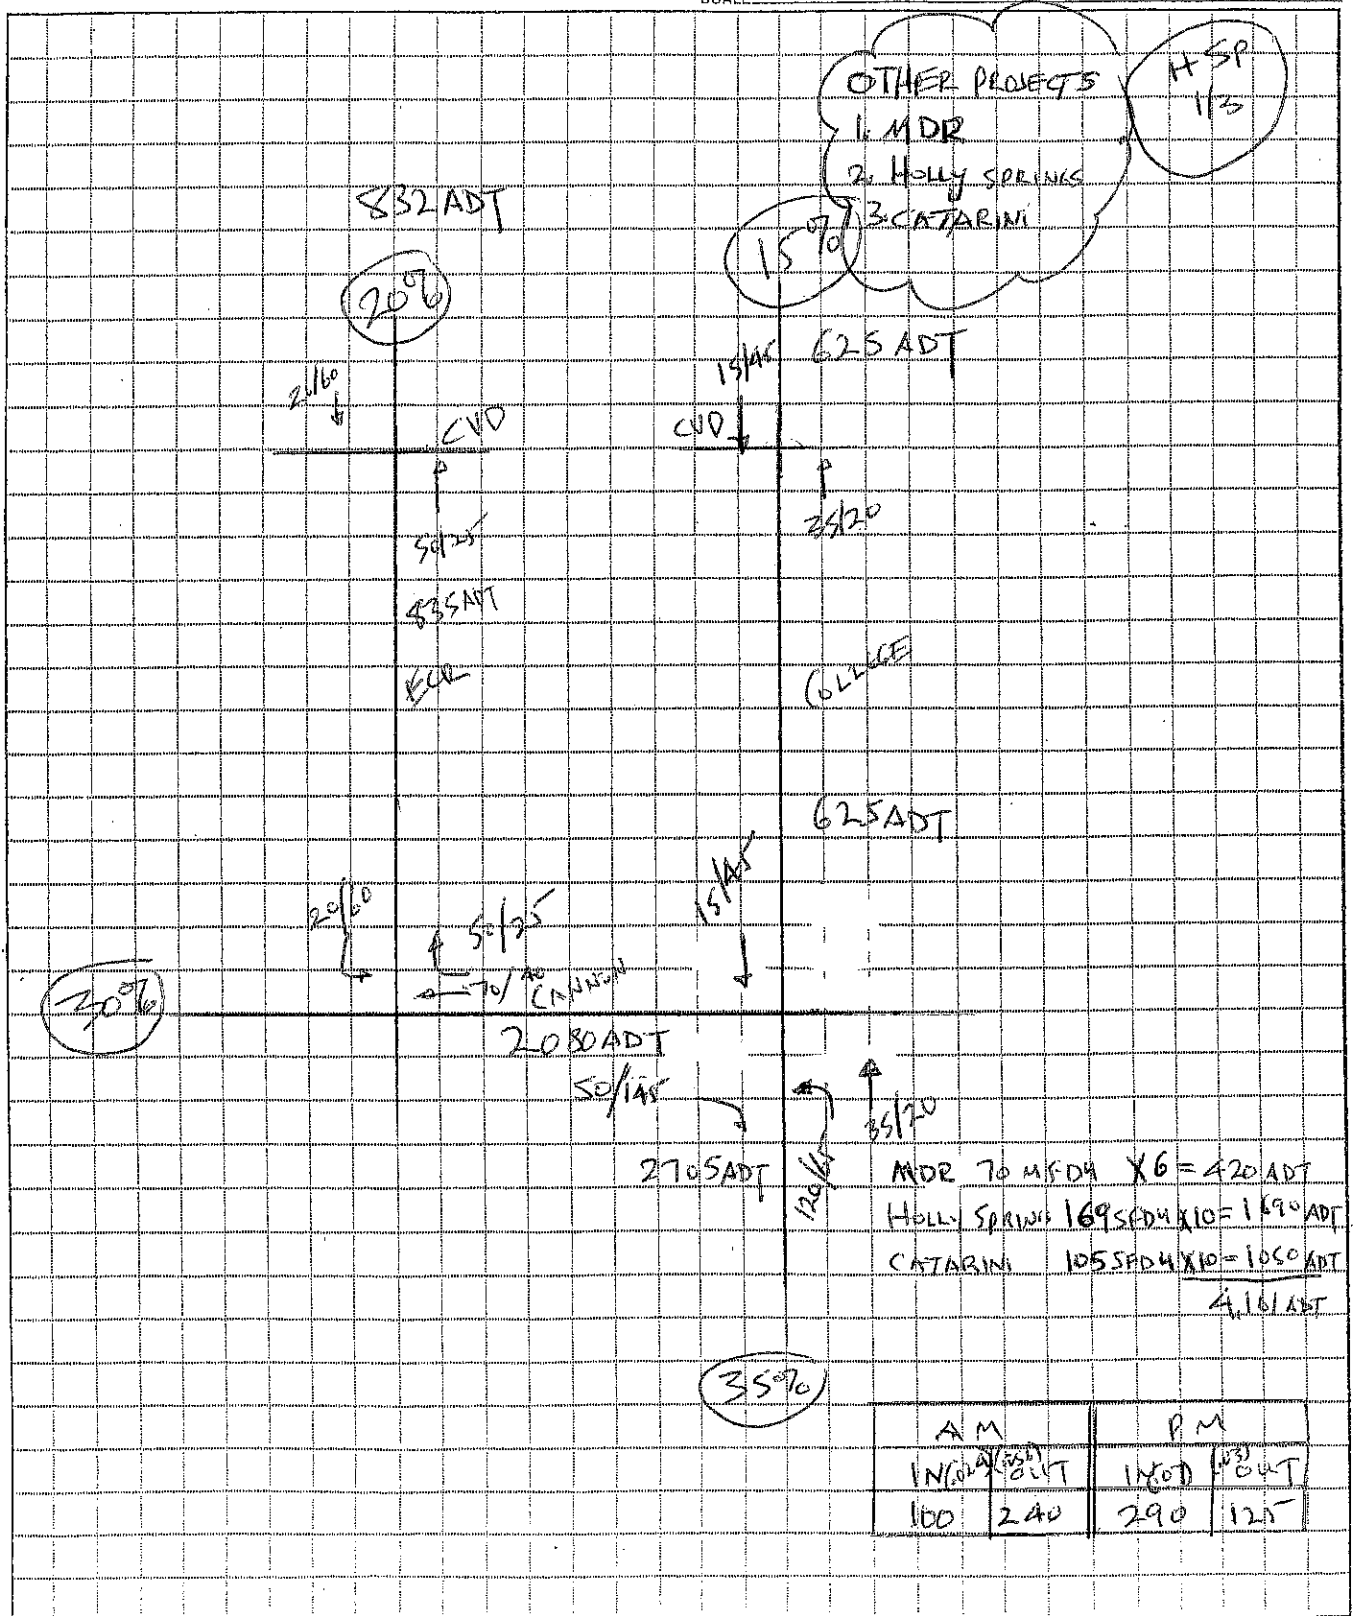 OTHER PROJECTS
1. MDR
2. HOLLY SPRINGS
3. CATARINI
H SP
1/3
832 ADT
20%
15%
625 ADT
15/45
CVD
CVD
50/25
35/20
835 ADT
ECR
COLLEGE
625 ADT
20/60
50/25
15/45
70/40
CANNON
30%
2080 ADT
50/145
35/20
2705 ADT
120/65
MDR 70 MFDU X6 = 420 ADT
HOLLY SPRINGS 169 SFDU X10 = 1690 ADT
CATARINI 105 SFDU X10 = 1050 ADT
4,161 ADT
35%
AM PM
IN OUT IN OUT
100 240 290 125